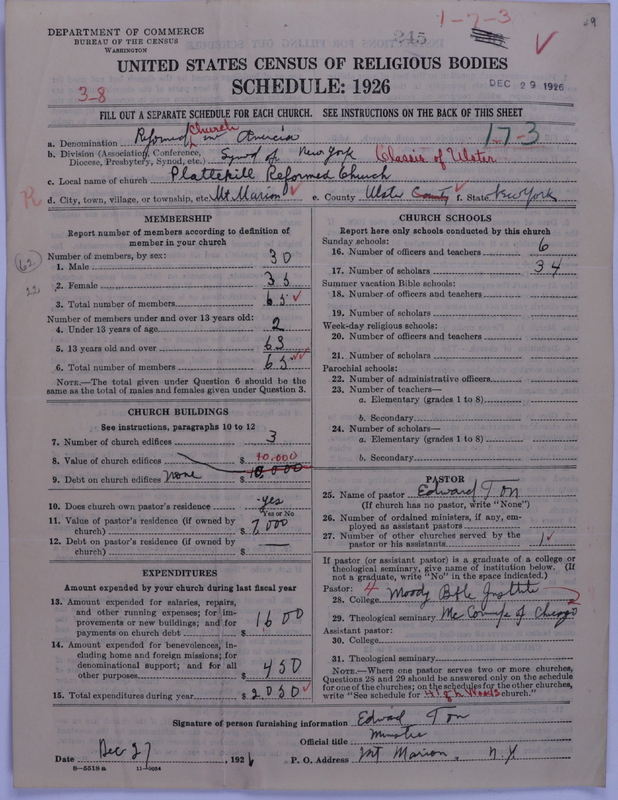 1-7-3
245
DEPARTMENT OF COMMERCE
BUREAU OF THE CENSUS
WASHINGTON
UNITED STATES CENSUS OF RELIGIOUS BODIES
SCHEDULE: 1926
DEC 29 1926
3-8
FILL OUT A SEPARATE SCHEDULE FOR EACH CHURCH. SEE INSTRUCTIONS ON THE BACK OF THIS SHEET
17-3
a. Denomination Reformed Church in America
b. Division (Association, Conference, Diocese, Presbytery, Synod, etc.) Synod of New York Classis of Ulster
c. Local name of church Plattekill Reformed Church
d. City, town, village, or township, etc. Mt Marion e. County Ulster County f. State New York
MEMBERSHIP
Report number of members according to definition of
member in your church
Number of members, by sex:
1. Male 30
2. Female 35
3. Total number of members 65
Number of members under and over 13 years old:
4. Under 13 years of age 2
5. 13 years old and over 63
6. Total number of members 65
NOTE.—The total given under Question 6 should be
same as the total of males and females given under Question 3.
CHURCH BUILDINGS
See instructions, paragraphs 10 to 12
7. Number of church edifices 3
8. Value of church edifices $ 10.000
9. Debt on church edifices none $ 10,000
10. Does church own pastor's residence yes
Yes or No
11. Value of pastor's residence (if owned by
church) $ 7,000
12. Debt on pastor's residence (if owned by
church) $
EXPENDITURES
Amount expended by your church during last fiscal year
13. Amount expended for salaries, repairs,
and other running expenses; for im-
provements or new buildings; and for
payments on church debt $ 1600
14. Amount expended for benevolences, in-
cluding home and foreign missions; for
denominational support; and for all
other purposes $ 450
15. Total expenditures during year $ 2050
CHURCH SCHOOLS
Report here only schools conducted by this church
Sunday schools:
16. Number of officers and teachers 6
17. Number of scholars 34
Summer vacation Bible schools:
18. Number of officers and teachers
19. Number of scholars
Week-day religious schools:
20. Number of officers and teachers
21. Number of scholars
Parochial schools:
22. Number of administrative officers
23. Number of teachers—
a. Elementary (grades 1 to 8)
b. Secondary
24. Number of scholars—
a. Elementary (grades 1 to 8)
b. Secondary
PASTOR
25. Name of pastor Edward Ton
(If church has no pastor, write "None")
26. Number of ordained ministers, if any, em-
ployed as assistant pastors
27. Number of other churches served by the
pastor or his assistants 1
If pastor (or assistant pastor) is a graduate of a college or
theological seminary, give name of institution below. (If
not a graduate, write "No" in the space indicated.)
Pastor: 4
28. College Moody Bible Institute
29. Theological seminary of Chicago
Assistant pastor:
30. College
31. Theological seminary
NOTE.—Where one pastor serves two or more churches,
Questions 28 and 29 should be answered only on the schedule
for one of the churches; on the schedules for the other churches,
write "See schedule for church."
Signature of person furnishing information Edward Ton
Official title Minister
Date Dec 27, 1926 P. O. Address Mt Marion, N.Y
8-5518a 11-9034